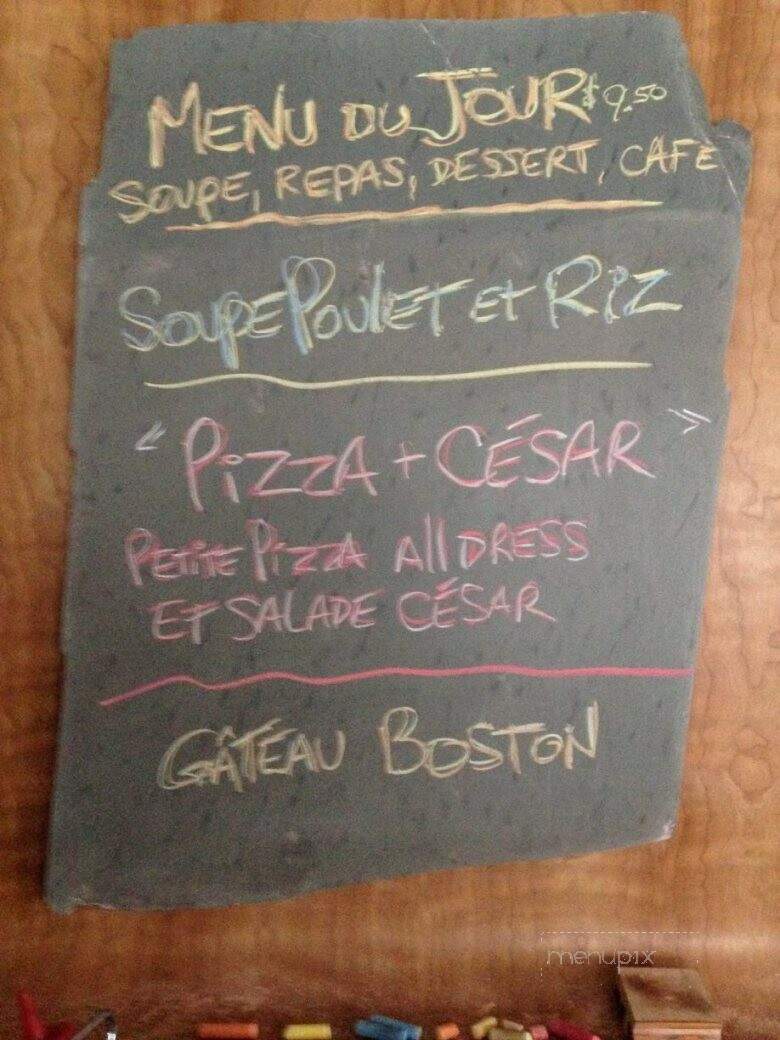 MENU DU JOUR $ 9.50
SOUPE, REPAS, DESSERT, CAFÉ
SOUPE POULET ET RIZ
« PIZZA + CÉSAR »
PETITE PIZZA All DRESS
ET SALADE CÉSAR
GÂTÉAU BOSTON
menupix